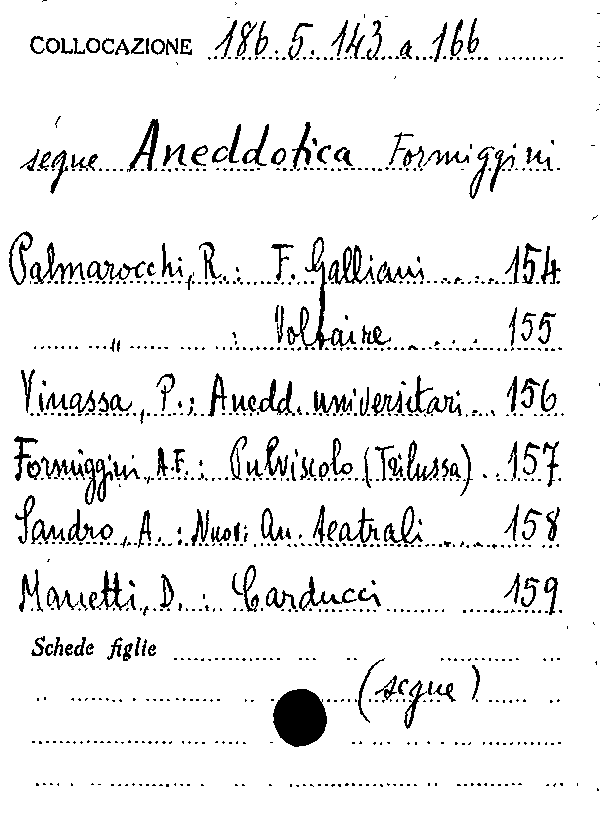 COLLOCAZIONE 186.5.143 a 166
segue Aneddotica Formiggini
Palmarocchi, R.: F. Galliani .... 154
" : Voltaire .... 155
Vinassa, P.: Anedd. universitari.. 156
Formiggini, A.F.: Pulviscolo (Trilussa).. 157
Sandro, A.: Nuovi An. teatrali .... 158
Manetti, D.: Carducci 159
Schede figlie
(segue)